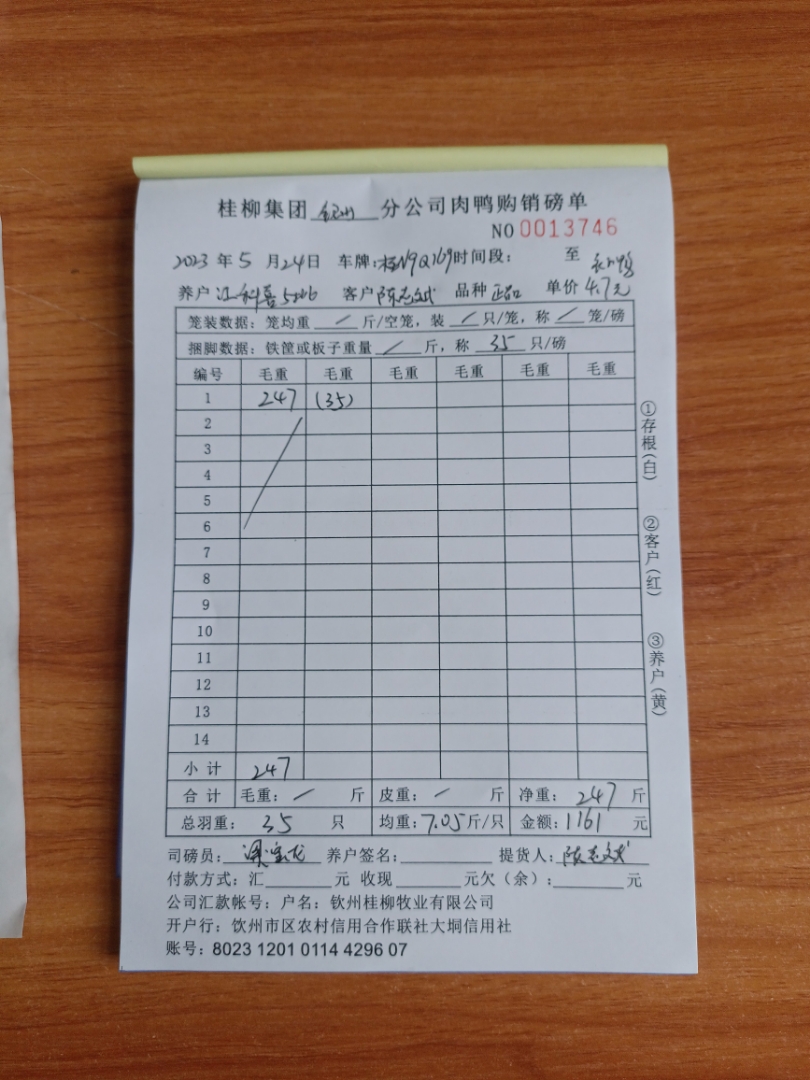 桂柳集团 钦州 分公司肉鸭购销磅单
NO 0013746
2023年5月24日 车牌:桂N9Q169 时间段: 至
养户 5226 客户 陈志斌 品种 正品 单价 4.7元
笼装数据:笼均重 / 斤/空笼,装 / 只/笼,称 / 笼/磅
捆脚数据:铁筐或板子重量 / 斤,称 35 只/磅
编号 毛重 毛重 毛重 毛重 毛重 毛重
1 247 (35)
2
3
4
5
6
7
8
9
10
11
12
13
14
小计 247
合计 毛重: / 斤 皮重: / 斤 净重: 247 斤
总羽重: 35 只 均重: 7.05斤/只 金额: 1161 元
司磅员: 养户签名: 提货人: 陈志斌
付款方式:汇 元 收现 元欠(余): 元
公司汇款帐号:户名:钦州桂柳牧业有限公司
开户行:饮州市区农村信用合作联社大垌信用社
账号:8023 1201 0114 4296 07
①存根(白)
②客户(红)
③养户(黄)